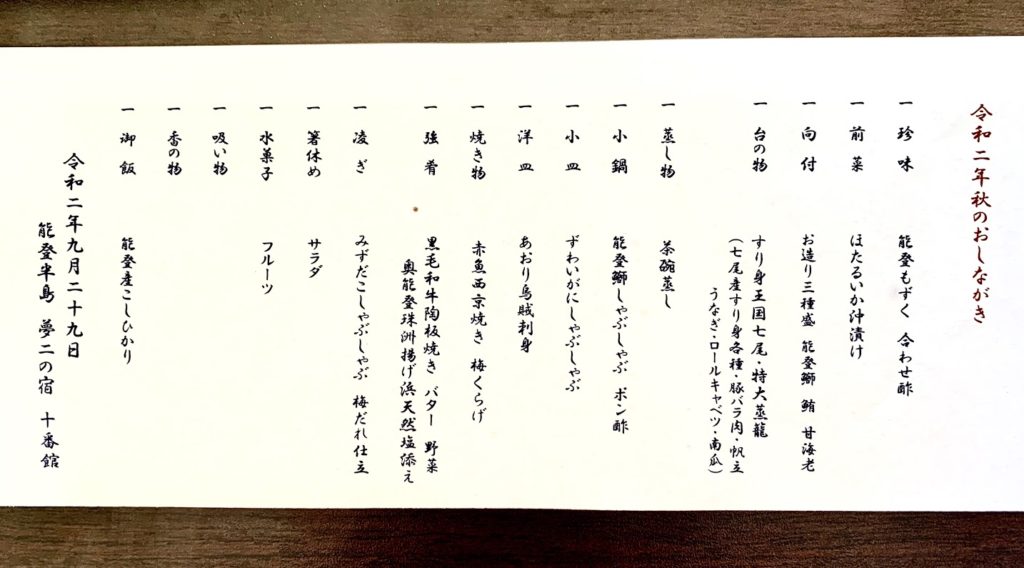 令和二年秋のおしながき
一 珍味 能登もずく 合わせ酢
一 前菜 ほたるいか沖漬け
一 向付 お造り三種盛 能登鰤 鮪 甘海老
一 台の物 すり身王国七尾・特大蒸籠
(七尾産すり身各種・豚バラ肉・帆立
うなぎ・ロールキャベツ・南瓜)
一 蒸し物 茶碗蒸し
一 小鍋 能登鰤しゃぶしゃぶ ポン酢
一 小皿 ずわいがにしゃぶしゃぶ
一 洋皿 あおり烏賊刺身
一 焼き物 赤魚西京焼き 梅くらげ
一 強肴 黒毛和牛陶板焼き バター 野菜
奥能登珠洲揚げ浜天然塩添え
一 凌ぎ みずだこしゃぶしゃぶ 梅だれ仕立
一 箸休め サラダ
一 水菓子 フルーツ
一 吸い物
一 香の物
一 御飯 能登産こしひかり
令和二年九月二十九日
能登半島 夢二の宿 十番館